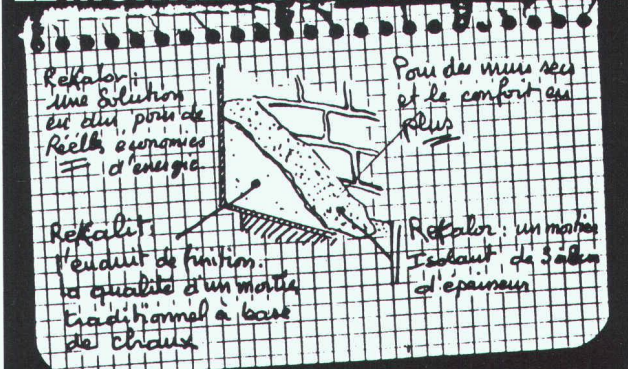 Rekalor :
une Solution
en dur pour de
Réelles économies
d'énergie
Pour des murs secs
et le confort en
plus
Rekalit :
l'enduit de finition.
la qualité d'un mortier
traditionnel à base
de chaux
Rekalor : un mortier
Isolant de 3 à 8cm
d'épaisseur